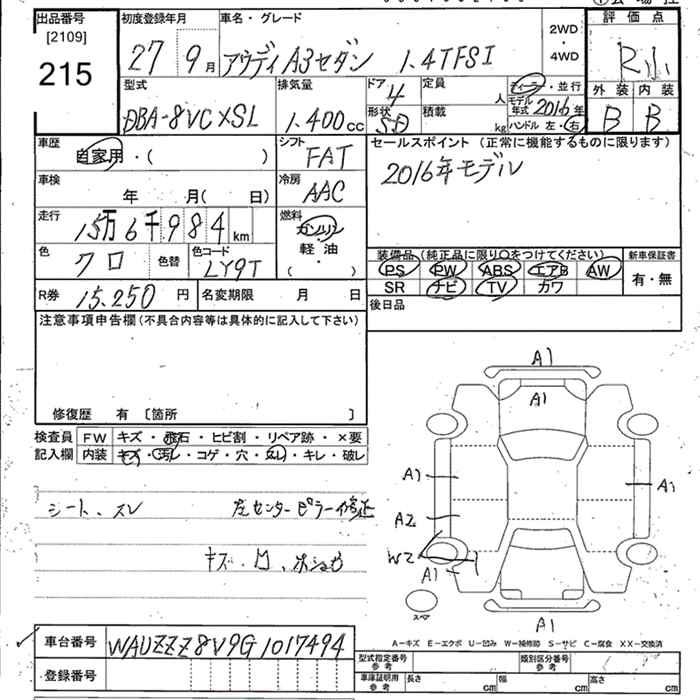 出品番号 [2109] 215
初度登録年月 27 9月
車名・グレード アウディ A3セダン 1.4TFSI
2WD・4WD
評価点 R小
外装 B 内装 B
型式 DBA-8VCXSL
排気量 1.400cc
ドア 4 形状 SD
定員 人 積載 kg
ディーラー・並行
モデル年式 2016年
ハンドル 左・右
車歴 自家用・( )
シフト FAT
セールスポイント (正常に機能するものに限ります)
2016年モデル
車検 年 月( 日)
冷房 AAC
走行 15万6千984km
燃料 ガソリン 軽・油 ( )
色 クロ 色替 色コード LY9T
装備品 (純正品に限り○をつけてください) 新車保証書
PS PW ABS エアB AW 有・無
SR ナビ TV カワ
R券 15.250円 名変期限 月 日
後日品
注意事項申告欄(不具合内容等は具体的に記入して下さい)
修復歴 有 〔箇所 〕
検査員記入欄 FW キズ・飛石・ヒビ割・リペア跡・×要
内装 キズ・汚れ・コゲ・穴・スレ・キレ・破レ
シート、スレ 左センターピラー修正
キズ・凹、
A1
A1
A1 A1
A2
W2
A1
A1
スペア
A−キズ E−エクボ U−凹み W−補修跡 S−サビ C−腐食 XX−交換済
車台番号 WAUZZZ8V9G1017494
登録番号
型式指定番号 参考 類別区分番号 参考
車庫証明用 参考 長さ cm 幅 cm 高さ cm